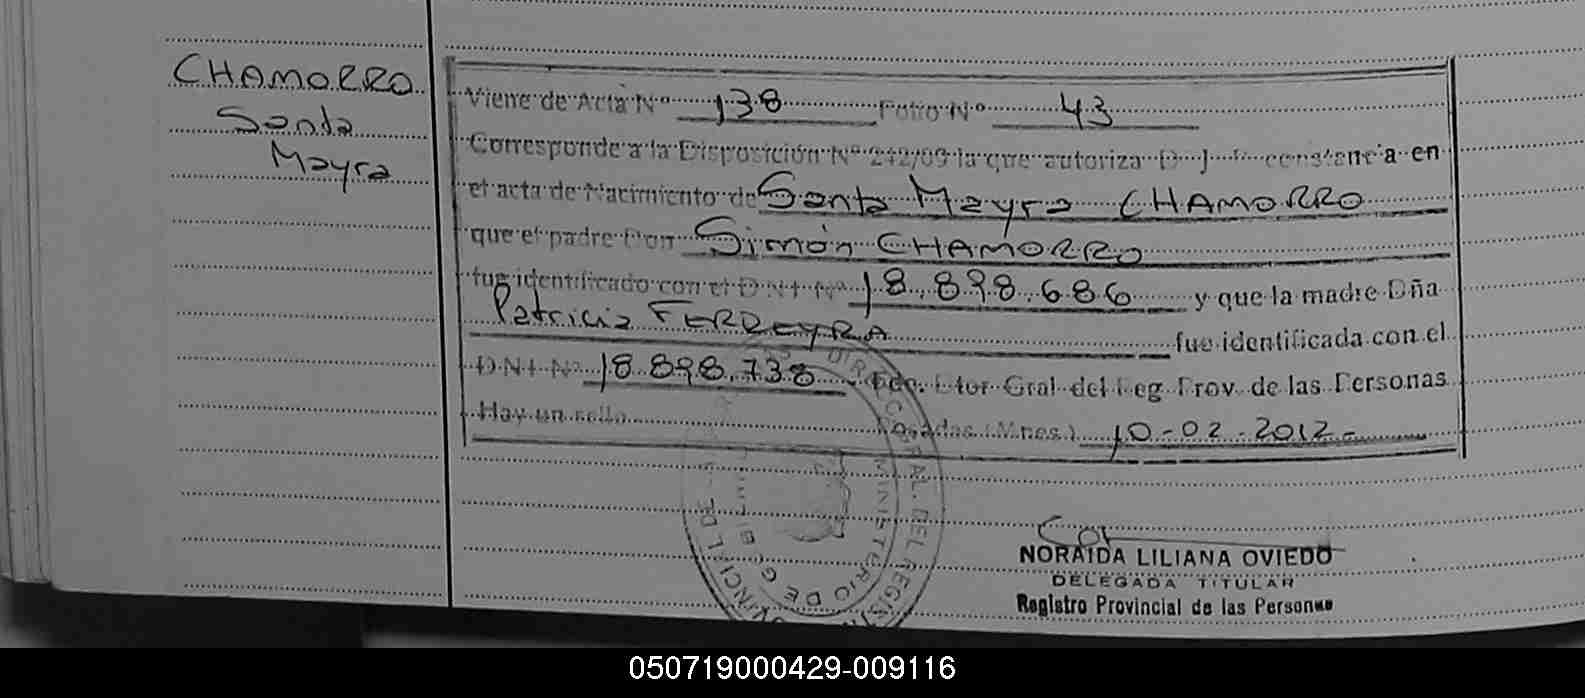 CHAMORRO
Santa
Mayra
Viene de Acta Nº 138 Folio Nº 43
Corresponde a la Disposición Nº 242/09 la que autoriza D J constancia en
el acta de Nacimiento de Santa Mayra CHAMORRO
que el padre Don Simón CHAMORRO
fue identificado con el D N I Nº 18.898.686 y que la madre Dña
Patricia FERREYRA fue identificada con el
D N I Nº 18.898.738 Fdo. Dtor Gral del Reg Prov. de las Personas
Hay un sello Posadas (Mnes.) 10-02-2012-
NORAIDA LILIANA OVIEDO
DELEGADA TITULAR
Registro Provincial de las Personas
MINISTERIO DE
050719000429-009116